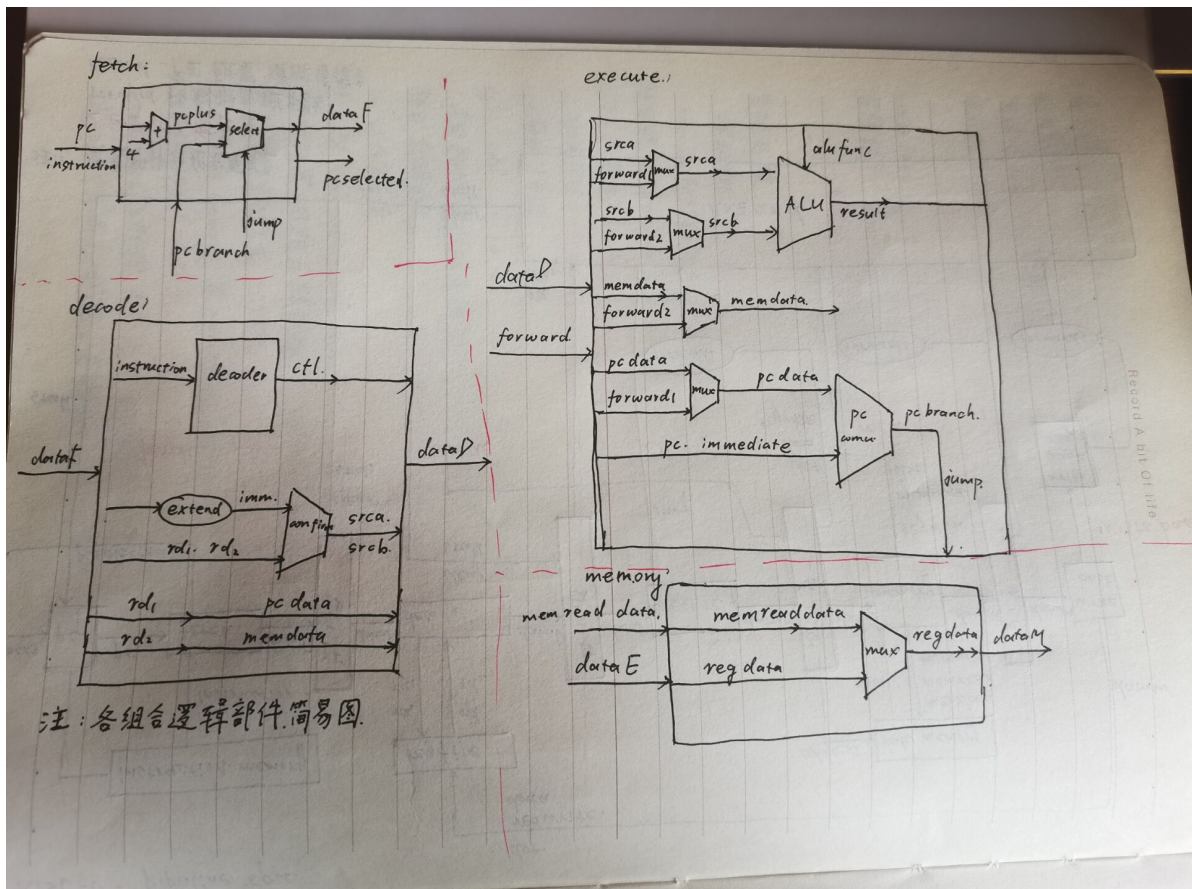 fetch:
pc
instruction
4
+
pcplus
select
dataF
pcselected.
jump
pcbranch
decode:
instruction
decoder
ctl.
dataF
dataD
extend
imm.
rd1. rd2
srca.
srcb.
rd1
pcdata
rd2
memdata
注:各组合逻辑部件简易图.
execute:
srca
forward1
mux
srca
alufunc
ALU
result
srcb
forward2
mux
srcb
dataD
forward
memdata
forward2
mux
memdata.
pcdata
forward1
mux
pcdata
pc
pcbranch.
pc. immediate
jump.
memory:
mem read data.
memreaddata
mux
regdata
dataM
dataE
regdata
Record A bit Of life